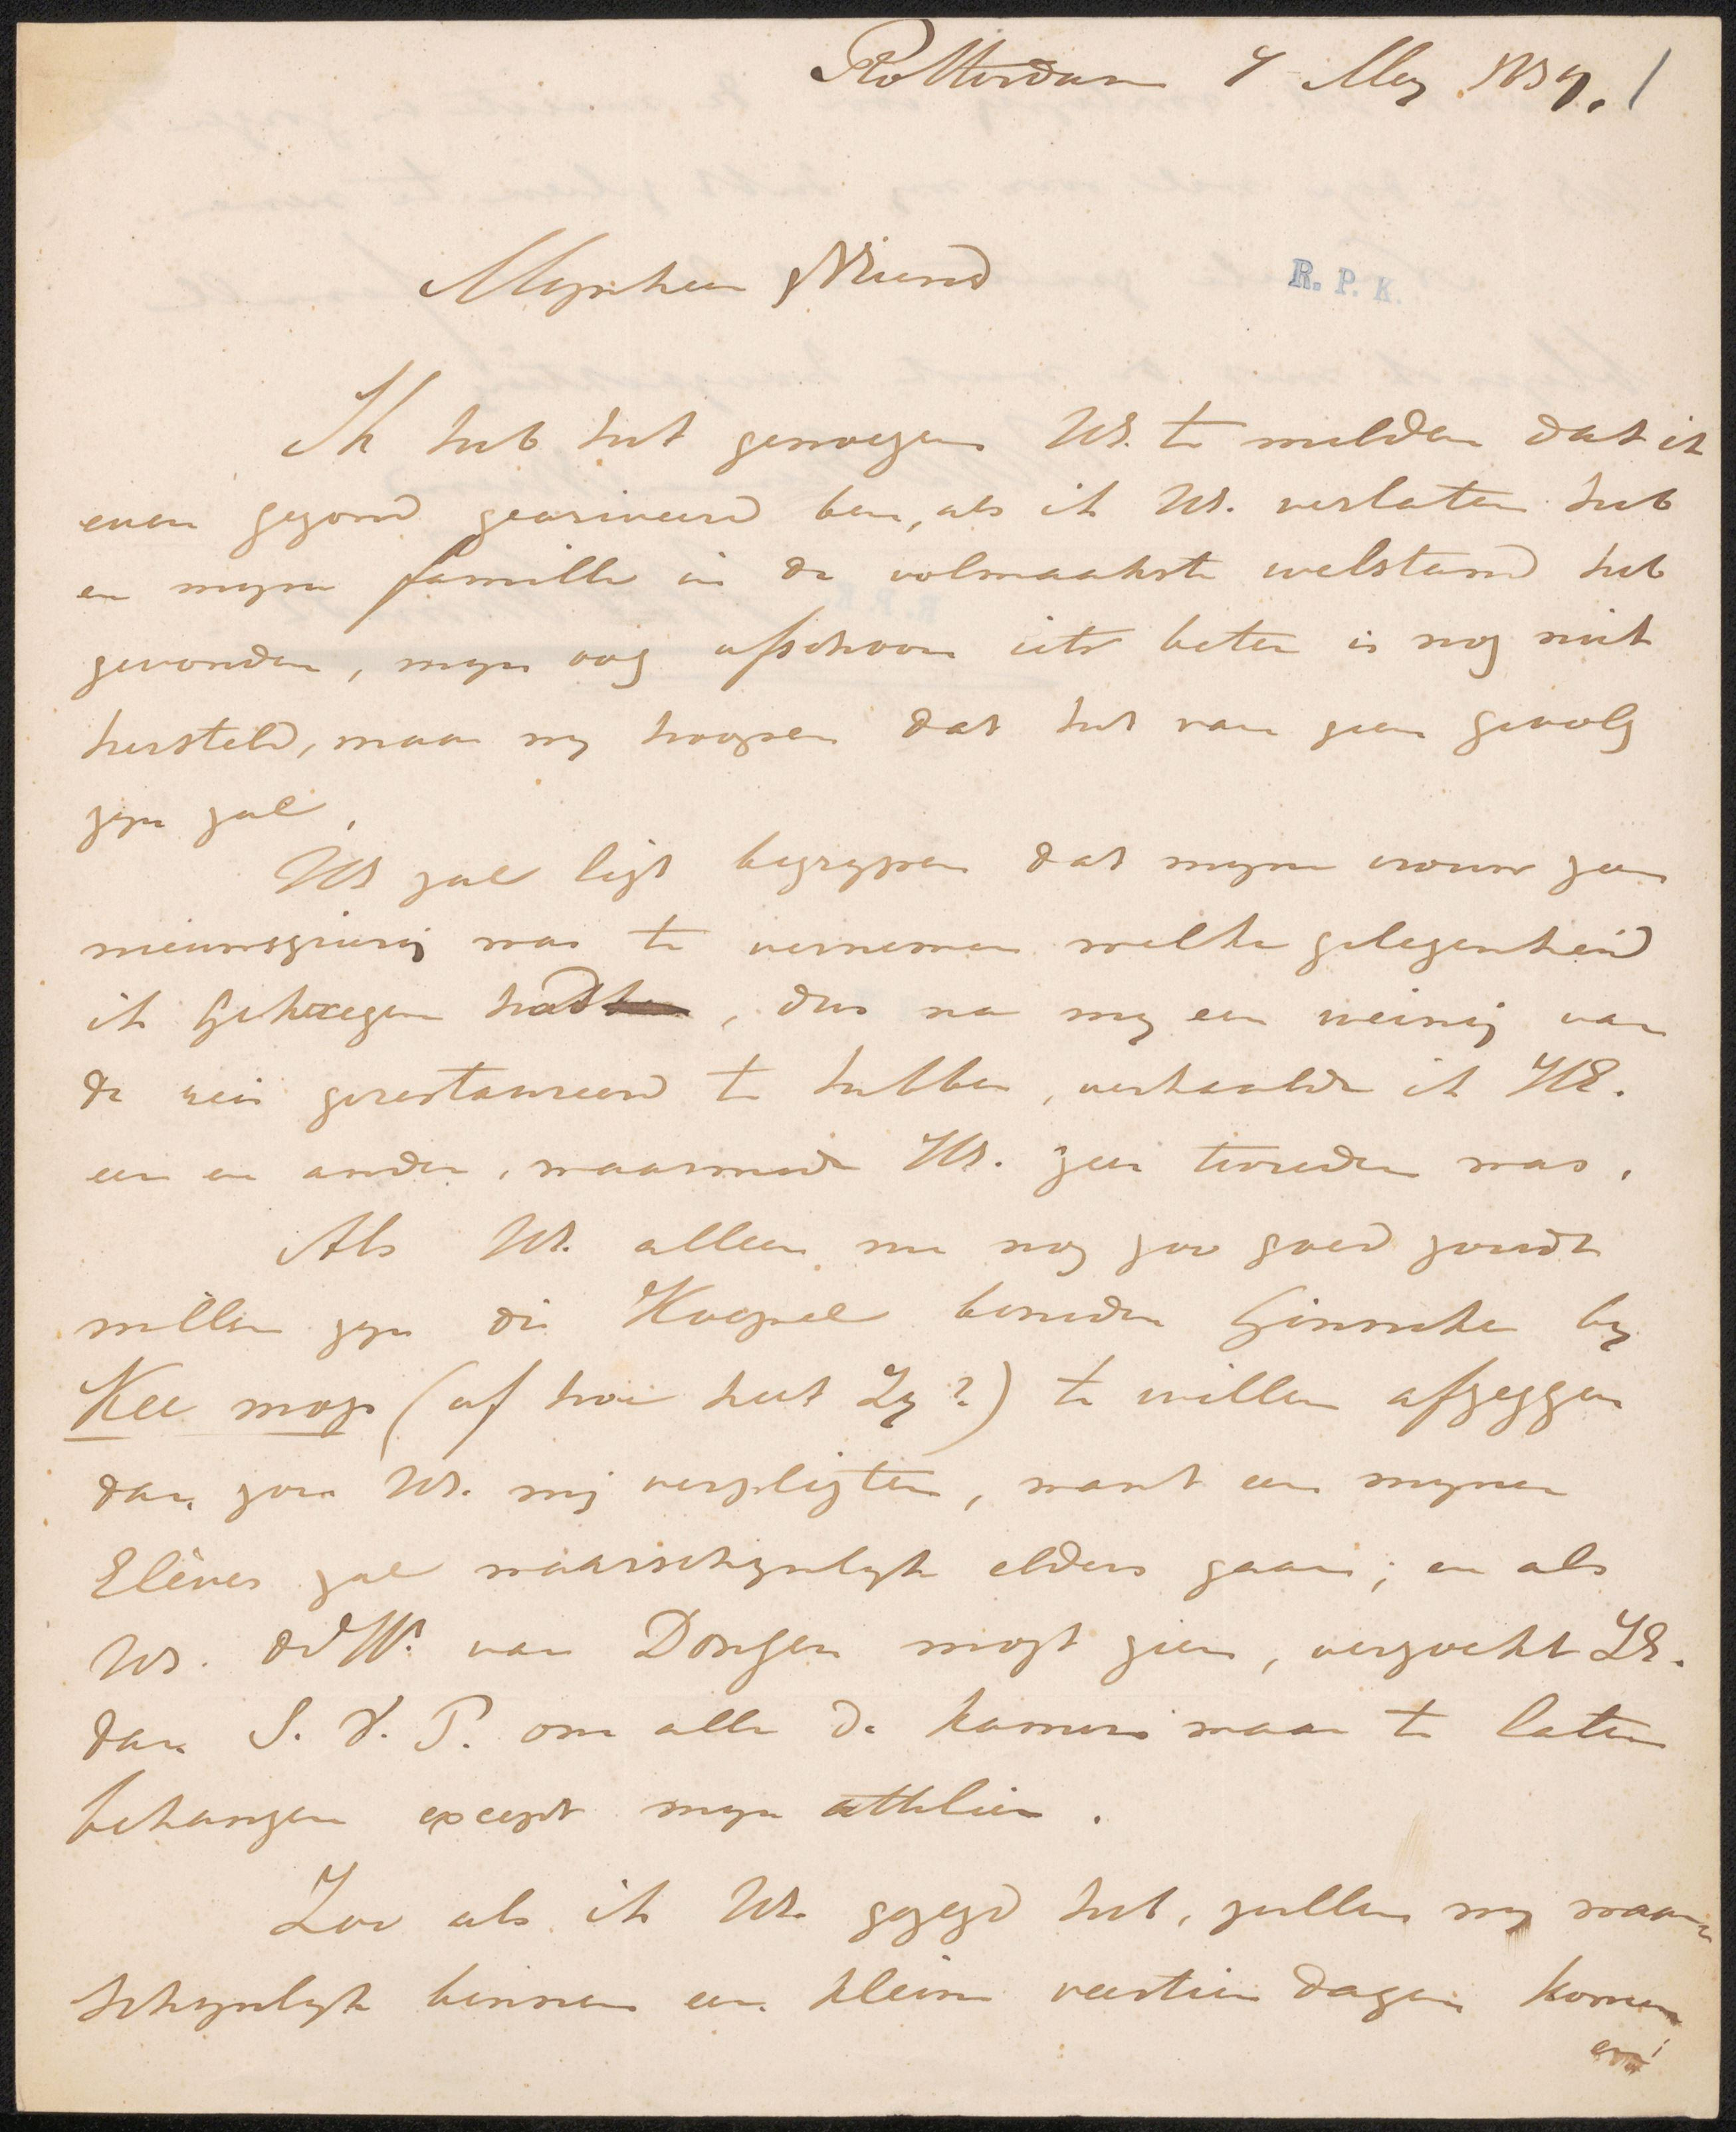 Rotterdam 7 Mey 1837. /
Mynheer & Vriend
R. P. K.
Ik heb het genoegen UE. te melden dat ik
even gezond gearriveerd ben, als ik UE. verlaten heb
en myne famille in de volmaakste welstand heb
gevonden, myn oog afschoon iets beter is nog niet
hersteld, maar wy hoopen dat het van geen gevolg
zyn zal.
UE zal ligt begrypen dat myne vrouw zeer
nieuwsgierig was te vernemen welke gelegenheid
ik gekregen had, dus na my een weinig van
de reis gerestaureerd te hebben, verhaalde ik HE.
een en ander, waarmede HE. zeer tevreden was.
Als UE. alleen nu nog zoo goed zoudt
willen zyn die Koepel beneden Ginneke by
Kee mop (of hoe heet Zy?) te willen afzeggen
dan zou UE. mij verpligten, want een myner
Elèves zal waarschynlyk elders gaan; en als
UE. van Dongen mogt zien, verzoekt ZE.
dan S. V. P. om alle de kamers maar te laten
behangen except myn atthelier.
Zoo als ik UE. gezegd heb, zullen wy waar-
schynlyk binnen een kleine veertien dagen komen